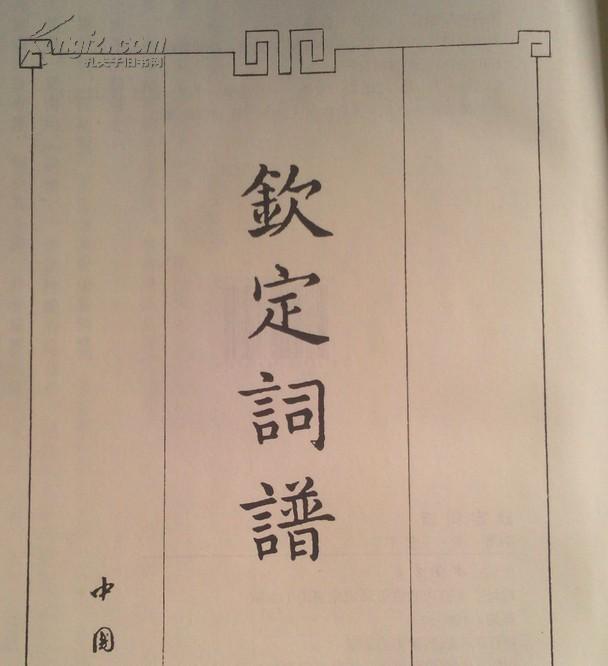 欽定詞譜
中国
Kongfz.com
孔夫子旧书网